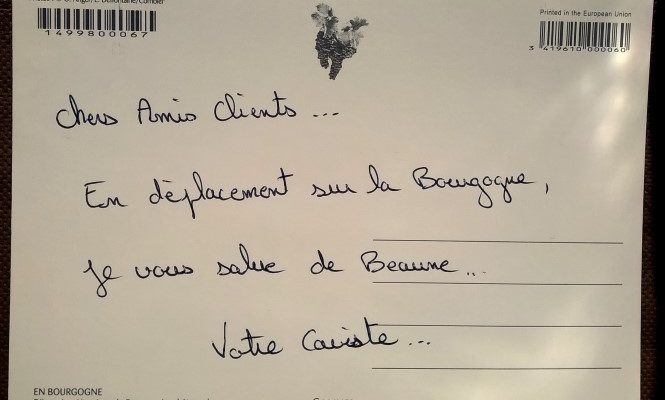 Printed in the European Union
1499800067
3 419610 000060
Chers Amis Clients ...
En déplacement sur la Bourgogne,
Je vous salue de Beaune...
Votre Caviste...
EN BOURGOGNE